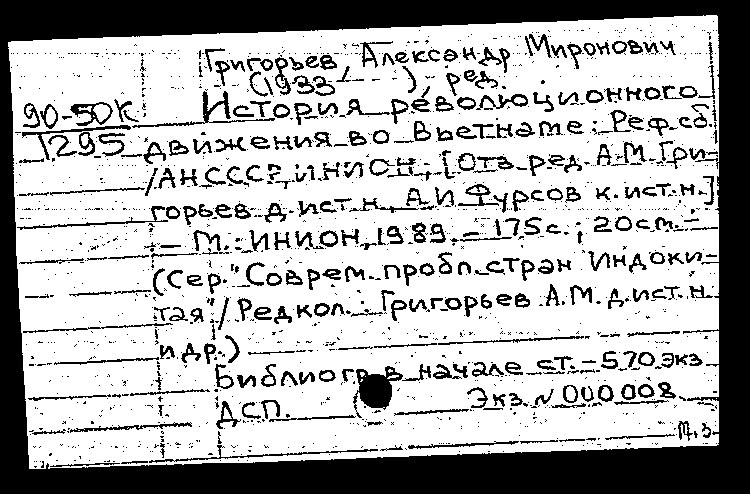 Григорьев, Александр Миронович
(1933 - ), ред.
90-50К
1295
История революционного
движения во Вьетнаме: Реф.сб.
/АН СССР, ИНИОН; [Отв.ред. А.М.Гри-
горьев д.ист.н., А.И.Фурсов к.ист.н.]
- М.: ИНИОН, 1989. - 175с.; 20см. -
(Сер. "Соврем. пробл. стран Индоки-
тая"/Редкол.: Григорьев А.М. д.ист.н.
и др.)
Библиогр. в начале ст. - 570 экз
ДСП. Экз N 000008